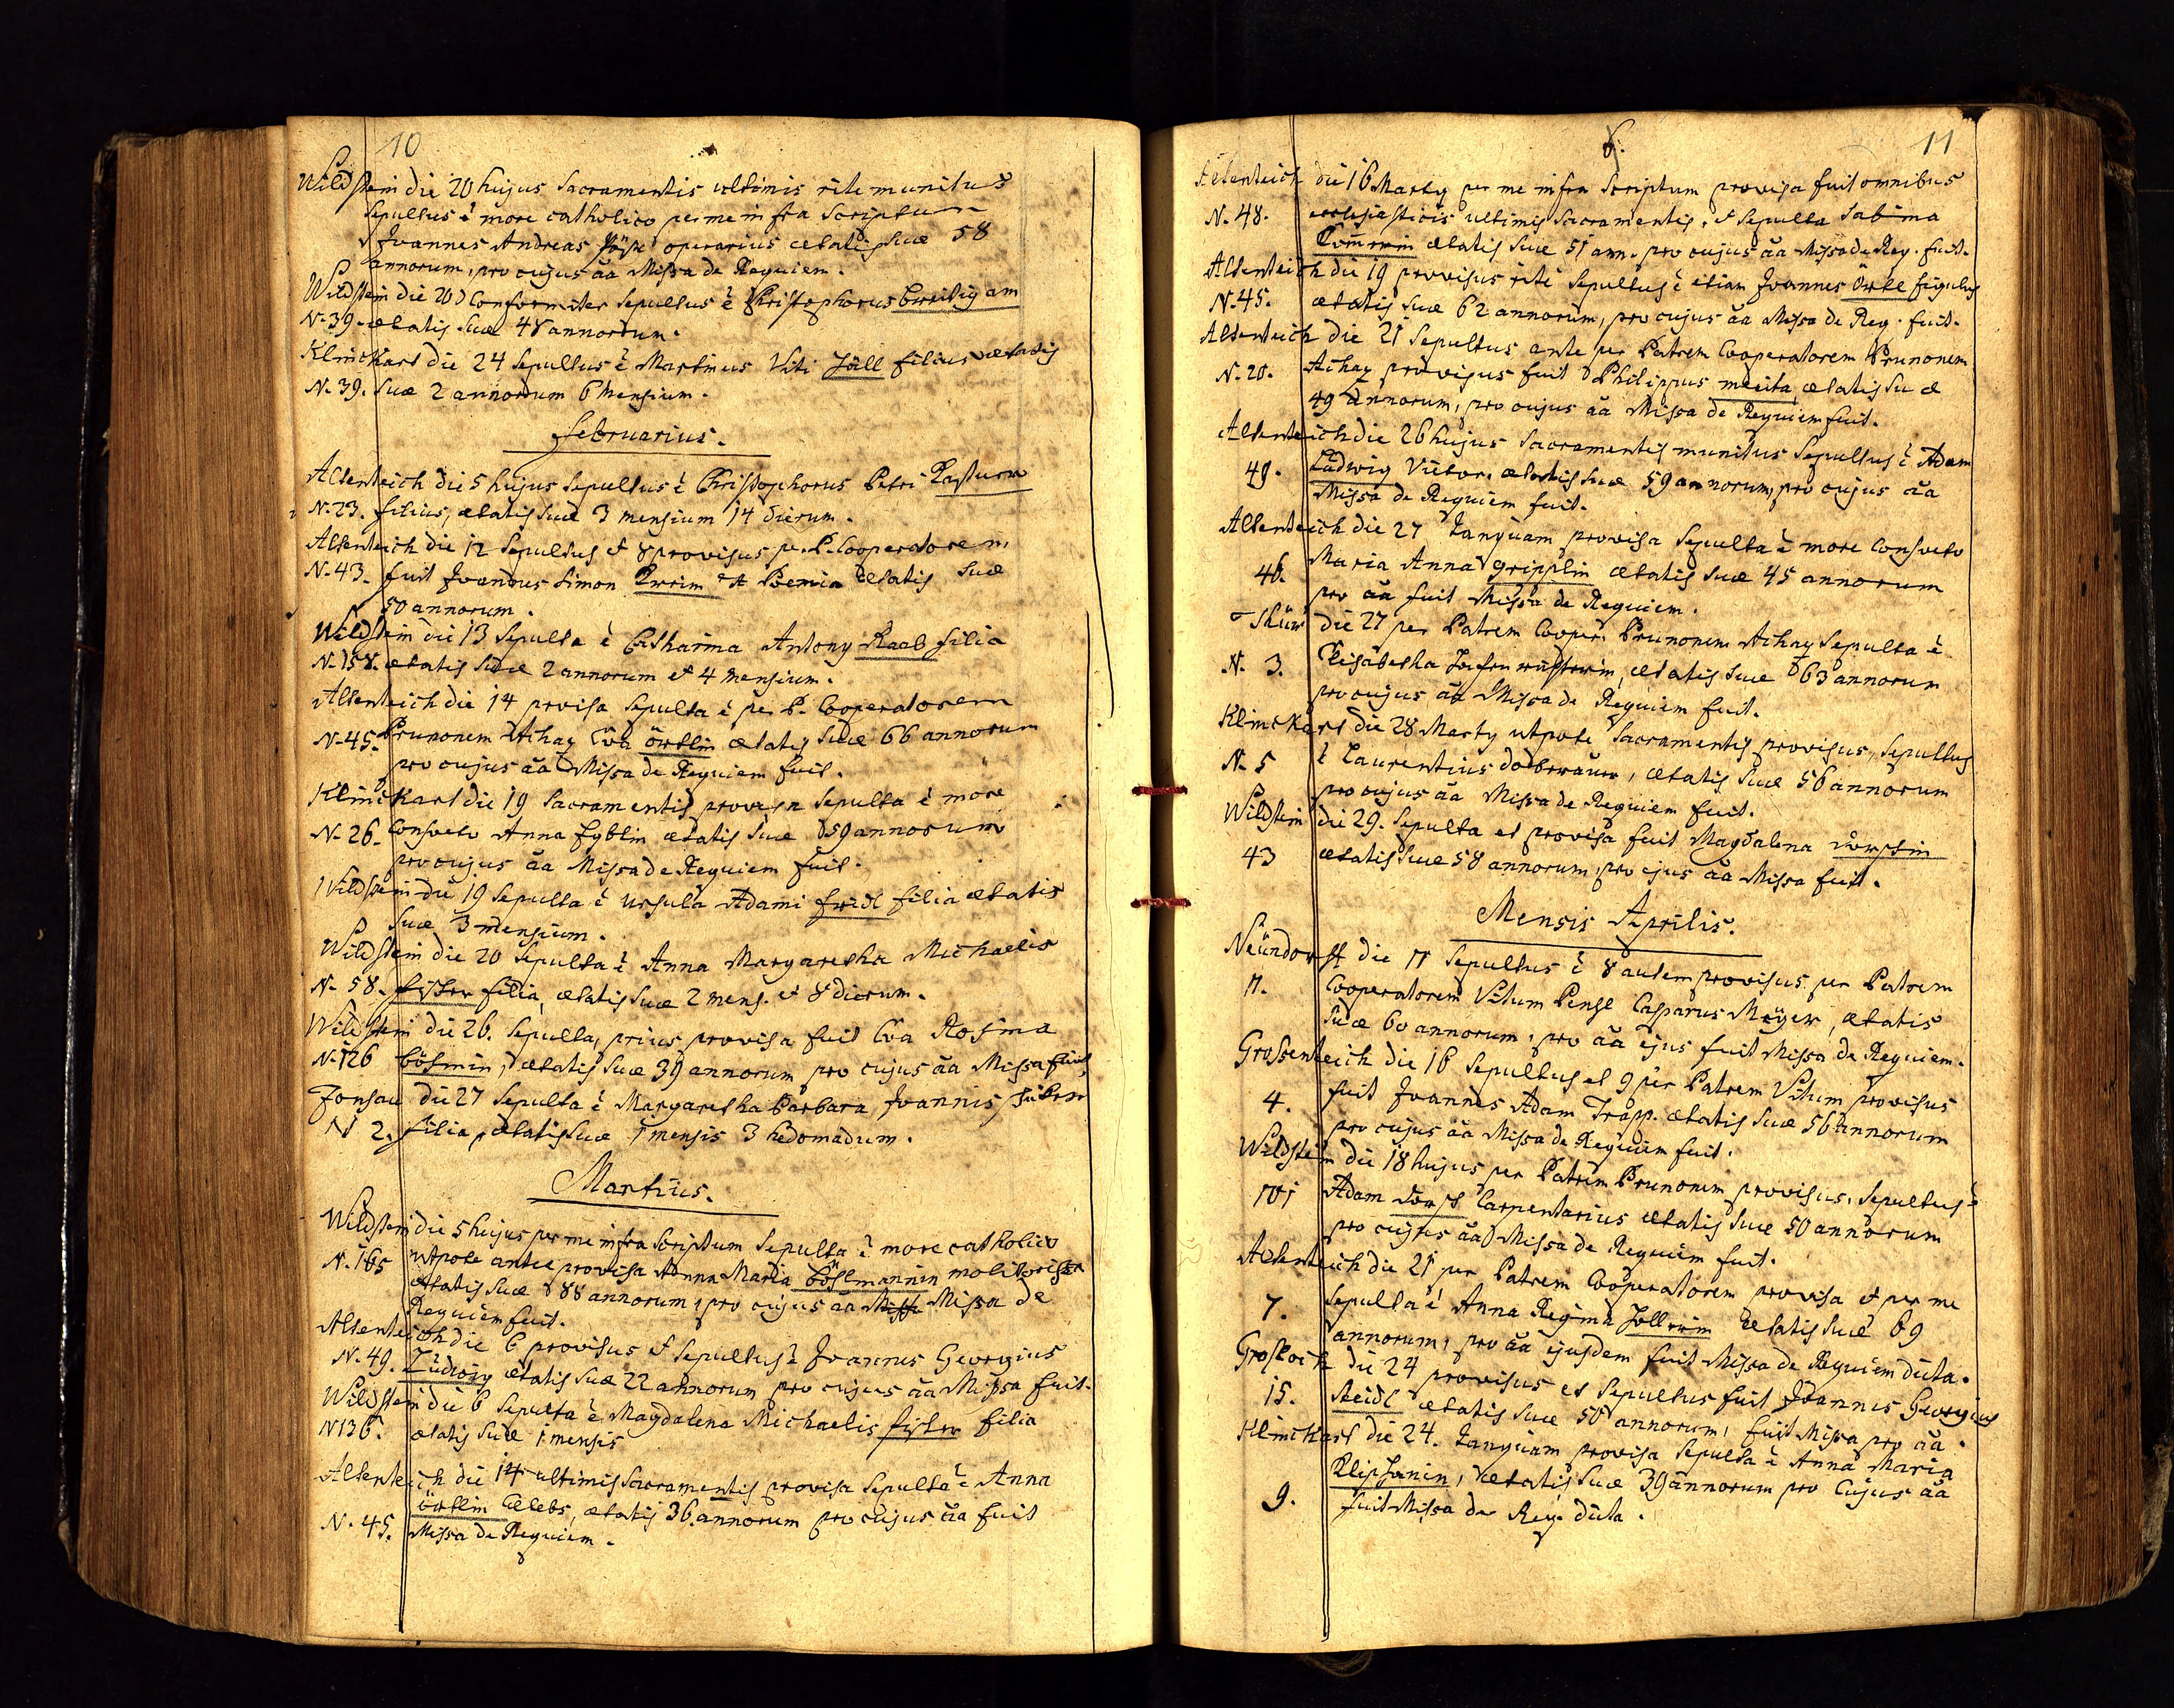 10
Wildstein die 20 hujus Sacramentis ultimis rite munitus
Sepultus ē more catholico per me infra Scriptum
Joannes Andreas operarius ætatis suæ 58
annorum, pro cujus āā Missa de Requiem.
Wildstein die 20 Conformiter Sepultus ē Christophorus
N. 39. ætatis suæ 48 annorum.
Klinckart die 24 Sepultus ē Martinus Viti Jöll filius ætatis
N. 39. suæ 2 annorum 6 mensium.
Februarius.
Altenteich die 5 hujus Sepultus ē Christophorus Petri
N. 23. filius, ætatis suæ 3 mensium 14 dierum.
Altenteich die 12 Sepultus et 8 provisus per P. Cooperatorem
N. 43. fuit Joannes Simon ætatis suæ
50 annorum.
Wildstein die 13 Sepulta ē Catharina Antony Raab filia
N. 158. ætatis suæ 2 annorum et 4 mensium.
Altenteich die 14 provisa Sepulta ē per P. Cooperatorem
N. 45. Prunonem Achaz Eva örtlin ætatis suæ 66 annorum
pro cujus āā Missa de Requiem fuit.
Klinckart die 19 Sacramentis provisa Sepulta ē more
N. 26. Consveto Anna ætatis suæ 59 annorum
pro cujus āā Missa de Requiem fuit.
Wildstein die 19 Sepulta ē Ursula Adami filia ætatis
suæ 3 mensium.
Wildstein die 20 Sepulta ē Anna Margaretha Michaelis
N. 58. fischer filia, ætatis suæ 2 mens. et 8 dierum.
Wildstein die 26. Sepulta, prius provisa fuit Eva Rosina
N. 126 ætatis suæ 39 annorum pro cujus āā Missa fuit
Fonsau die 27 Sepulta ē Margaretha Barbara Joannis
N 2. filia, ætatis suæ 1 mensis 3 hedomadum.
Martius.
Wildstein die 5 hujus per me infra Scriptum Sepulta ē more catholico
N. 165 utpote antea provisa Anna Maria böslmannin molitorissa
ætatis suæ 88 annorum, pro cujus āā Missa de
Requiem fuit.
Altenteich die 6 provisus et Sepultus ē Joannes Georgius
N. 49. Ludwig ætatis suæ 22 annorum pro cujus āā Missa fuit.
Wildstein die 6 Sepulta ē Magdalena Michaelis fischer filia
N 136. ætatis suæ 1 mensis
Altenteich die 14 ultimis Sacramentis provisa Sepulta ē Anna
örtlin Cælebs, ætatis 36 annorum pro cujus āā fuit
N. 45. Missa de Requiem.
6.
11
Altenteich die 16 Marty per me infra Scriptum provisa fuit omnibus
N. 48. ecclesiasticis ultimis Sacramentis, et Sepulta Sabina
ætatis suæ 51 ann. pro cujus āā Missa de Req. fuit.
Altenteich die 19 provisus rite Sepultus ē etiam Joannes Örtl figulus
N. 45. ætatis suæ 62 annorum, pro cujus āā Missa de Req. fuit.
Altenteich die 21 Sepultus ante per Patrem Cooperatorem Prunonem
N. 20. Achaz provisus fuit Philippus ætatis suæ
49 annorum, pro cujus āā Missa de Requiem fuit.
Altenteich die 26 hujus Sacramentis munitus Sepultus ē Adam
49. Ludwig ætatis suæ 59 annorum, pro cujus āā
Missa de Requiem fuit.
Altenteich die 27 Tanquam provisa Sepulta ē more Consveto
46. Maria Anna gripplin ætatis suæ 45 annorum
pro āā fuit Missa de Requiem.
die 27 per Patrem Cooper. Prunonem Achaz Sepulta ē
N. 3. Elisabetha ætatis suæ 63 annorum
pro cujus āā Missa de Requiem fuit.
Klinckart die 28 Marty utpote Sacramentis provisus, Sepultus
N. 5 ē Laurentius ætatis suæ 56 annorum
pro cujus āā Missa de Requiem fuit.
Wildstein die 29. Sepulta et provisa fuit Magdalena
43 ætatis suæ 58 annorum, pro ejus āā Missa fuit.
Mensis Aprilis.
Neündorff die 11 Sepultus ē 8 autem provisus per Patrem
11. Cooperatorem Vitum Casparus ætatis
suæ 60 annorum, pro āā ejus fuit Missa de Requiem.
Grossenteich die 16 Sepultus et 9 per Patrem Vitum provisus
4. fuit Joannes Adam Trapp. ætatis suæ 56 annorum
pro cujus āā Missa de Requiem fuit.
Wildstein die 18 hujus per Patrem Prunonem provisus, Sepultus ē
Adam Carpentarius ætatis suæ 50 annorum
pro cujus āā Missa de Requiem fuit.
Altenteich die 21 per Patrem Cooperatorem provisa et per me
7. Sepulta ē Anna Regina ætatis suæ 69
annorum, pro āā ejusdem fuit Missa de Requiem dicta.
die 24 provisus et Sepultus fuit Joannes Georgius
15. ætatis suæ 50 annorum, fuit Missa pro āā.
Klinckart die 24. Tanquam provisa Sepulta ē Anna Maria
ætatis suæ 39 annorum pro Cujus āā
9. fuit Missa de Req. dicta.